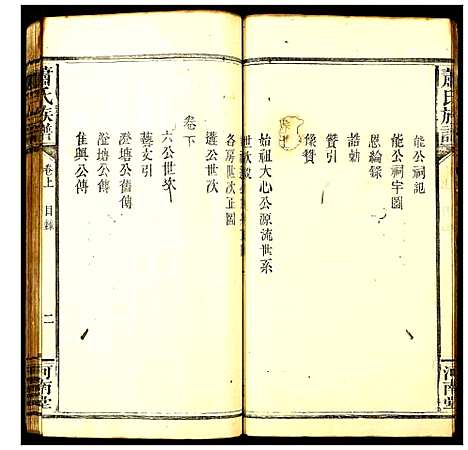 蕭氏族譜
河南堂
能公祠記
能公祠宇圖
恩綸錄
誥勅
贊引
像贊
始祖大心公源流世系
各房世次正圖
遷公世次
卷下
六公世次
藝文引
澄塘公舊傳
澄塘公傳
佳興公傳
蕭氏族譜
卷上
目錄
二
河南堂